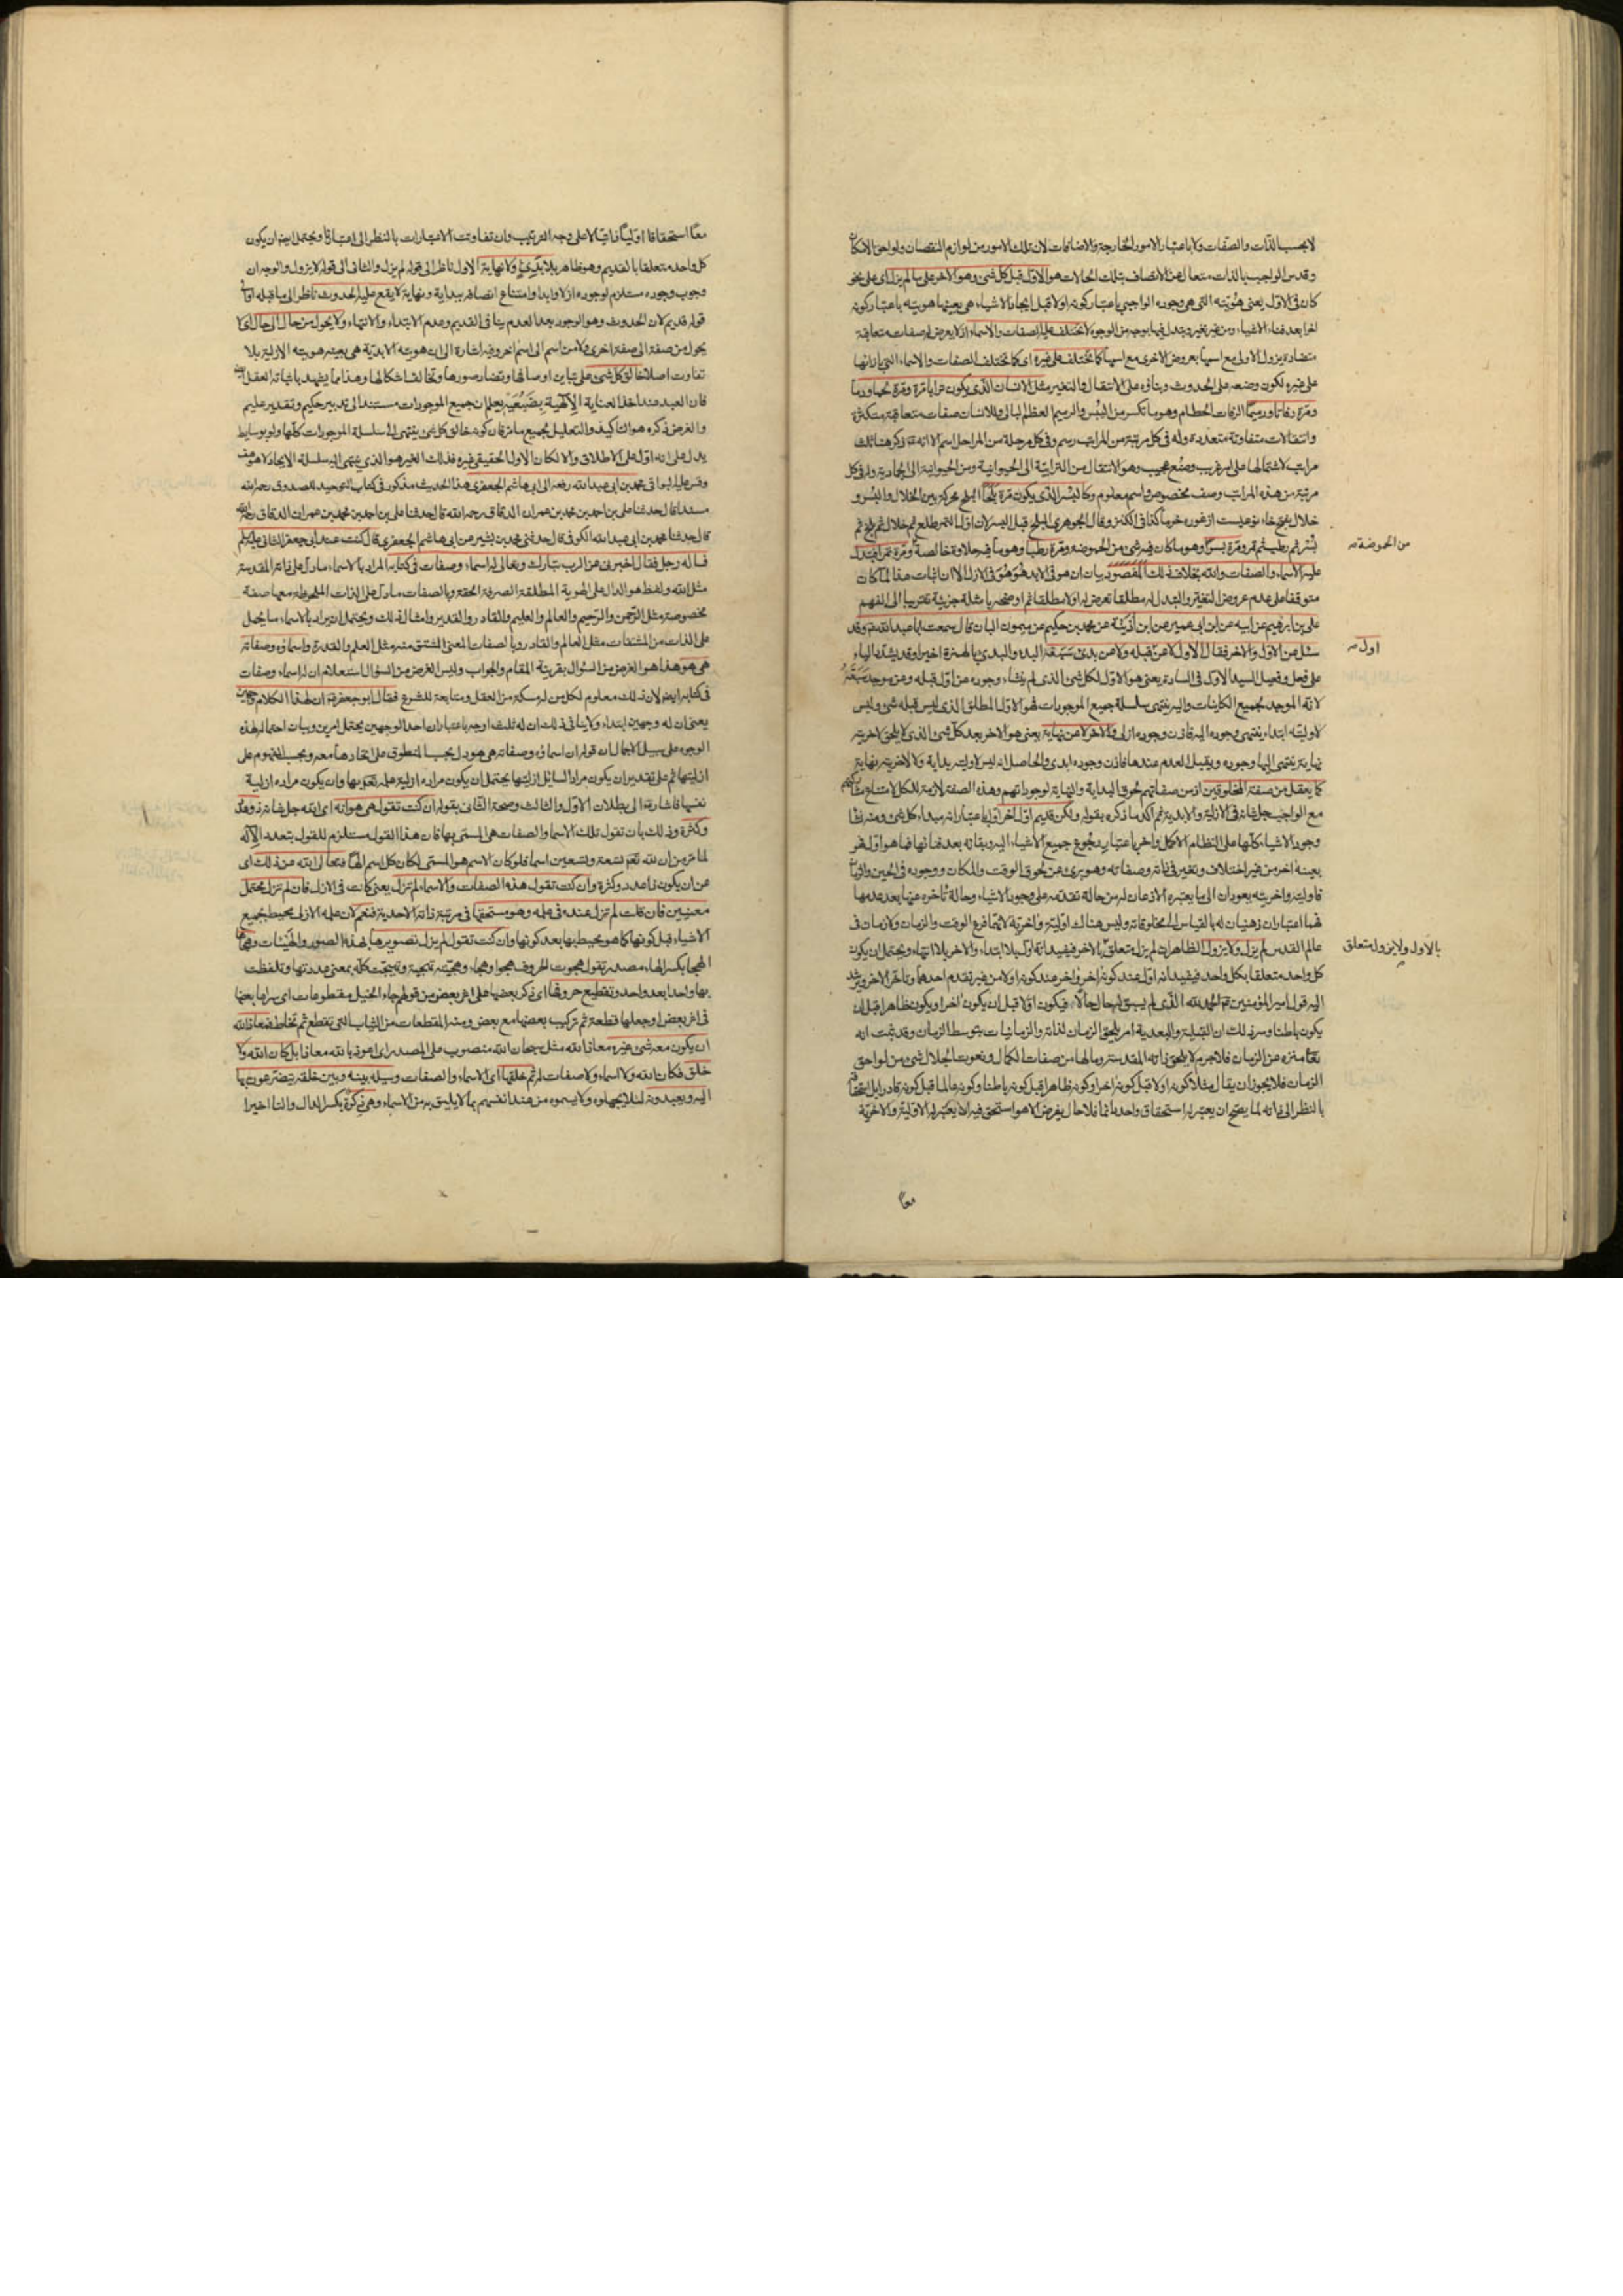 لا بحسب الذات والصفات ولا باعتبار الامور الخارجة والاضافات لان تلك الامور من لوازم النقصان ولواحق الامكان
وقدس الواجب بالذات متعال عن الاتصاف بتلك الحالات هو الاول قبل كل شئ وهو الاخر على ما لم يزل اى على نحو
كان فى الاول يعنى هويته التى هى وجوده الواجبى باعتبار كونه اولا قبل ايجاد الاشياء هى بعينها هويته باعتبار كونه
اخرا بعد فناء الاشياء ومن غير تغير وتبدل فيها بوجه من الوجوه لا تختلف عليه الصفات والاسماء اذ لا يعرض له صفات متعاقبة
متضادة يزول الاولى مع اسمها بعروض الاخرى مع اسمها كما تختلف على غيره اى كما تختلف الصفات والاسماء التى بازائها
على غيره لكون وضعه على الحدوث وبناؤه على الانتقال والتغير مثل الانسان الذى يكون ترابا مرة ومرة لحما ودما
ومرة رفاتا ورميما الرفات الحطام وهو ما تكسر من اليبس والرميم العظم البالى وللانسان صفات متعاقبة متكثرة
وانتقالات متفاوتة متعددة وله فى كل مرتبة من المراتب رسم وفى كل مرحلة من المراحل اسم الا انه ذكر هنا ثلث
مراتب لاشتمالها على امر غريب وصنع عجيب وهو الانتقال من الترابية الى الحيوانية ومن الحيوانية الى الجمادية وله فى كل
مرتبة من هذه المراتب وصف مخصوص واسم معلوم وكالبسر الذى يكون مرة بلحا البلح محركة بين الخلال والبسر و
خلال بفتح خاء نوعيست از غوره خرما كذا فى الكنز وقال الجوهرى البلح قبل البسر لان اول التمر طلع ثم خلال ثم بلح ثم
بسر ثم رطب ثم تمر ومرة بسرا وهو ما كان فيه شئ من الحموضة ومرة رطبا وهو ما فيه حلاوة خالصة ومرة تمرا فتبدل
من الحموضة صح
عليه الاسماء والصفات والله بخلاف ذلك المقصود بيان ان هو فى الابد هو هو فى الازل الا ان اثبات هذا لما كان
متوقفا على عدم عروض التغير والتبدل له مطلقا تعرض له اولا مطلقا ثم اوضحه بامثلة جزئية تقريبا الى الفهم
على بن ابرهيم عن ابيه عن ابن ابى عمير عن ابن اذينة عن محمد بن حكيم عن ميمون البان قال سمعت ابا عبد الله وقد
سئل عن الاول والاخر فقال الاول لا عن قبله ولا عن بدئ سبقه البدء والبدى بالهمزة اخيرا وقد يشدد الياء
اول صح
على فعل وفعيل السيد الاول فى السادة يعنى هو الاول لكل شئ الذى لم ينشاء وجوده عن اول قبله وعن موجد سبقه
لانه الموجد لجميع الكاينات واليه ينتهى سلسلة جميع الموجودات فهو الاول المطلق الذى ليس قبله شئ وليس
لاوليته ابتداء ينتهى وجوده اليه فاذن وجوده ازلى والاخر لا عن نهاية يعنى هو الاخر بعد كل شئ الذى لا يلحق لاخريته
نهاية ينتهى اليها وجوده ويقبل العدم عندها فاذن وجوده ابدى والحاصل انه ليس لاوليته بداية ولا لاخريته نهاية
كما يعقل من صفة المخلوقين اذ من صفاتهم لحوق البداية والنهاية لوجوداتهم وهذه الصفة لازمة للكل لامتناع مشاركتهم
مع الواجب جل شانه فى الازلية والابدية ثم اكد ما ذكره بقوله ولكن قديم اول اخر اول باعتبار انه مبداء كل شئ ومنه نشا
وجود الاشياء كلها على النظام الاكمل واخر باعتبار رجوع جميع الاشياء اليه وبقائه بعد فنائها فما هو اول هو
بعينه اخر من غير اختلاف وتغير فى ذاته وصفاته وهو برئ عن لحوق الوقت والمكان ووجوده فى الحين والزمان
فاوليته واخريته يعودان الى ما يعتبره الاذهان له من حالة تقدمه على وجود الاشياء وحالة تأخره عنها بعد عدمها
فهما اعتباران ذهنيان له بالقياس الى مخلوقاته وليس هناك اولية واخرية لانهما فرع الوقت والزمان ولا زمان فى
عالم القدس لم يزل ولا يزول الظاهر ان لم يزل متعلق بالاخر فيفيد انه اول بلا ابتداء والاخر بلا انتهاء ويحتمل ان يكون
بالاول ولا يزول متعلق
كل واحد متعلقا بكل واحد فيفيد انه اول عند كونه اخر واخر عند كونه اولا من غير تقدم احدهما وتاخر الاخر ويرشد
اليه قول امير المؤمنين الحمد لله الذى لم يسبق له حال حالا فيكون اولا قبل ان يكون اخرا ويكون ظاهرا قبل ان
يكون باطنا وسر ذلك ان القبلية والبعدية امر يلحق الزمان لذاته والزمانيات بتوسط الزمان وقد ثبت انه
تعالى منزه عن الزمان فلا جرم لا يلحق ذاته المقدسة وما لها من صفات الكمال ونعوت الجلال شئ من لواحق
الزمان فلا يجوز ان يقال مثلا كونه اولا قبل كونه اخرا وكونه ظاهرا قبل كونه باطنا وكونه عالما قبل كونه قادرا بل استحقاقه
بالنظر الى ذاته لما يصح ان يعتبر له استحقاق واحد دائما فلا حال يفرض الا هو استحق فيه ان يعتبر له الاولية والاخرية
معا
معا استحقاقا اوليا ذاتيا لا على وجه الترتيب وان تفاوتت الاعتبارات بالنظر الى اعتبارنا ويحتمل ايضا ان يكون
كل واحد متعلقا بالقديم وهو ظاهر بلا بدئ ولا نهاية الاول ناظر الى قوله لم يزل والثانى الى قوله لا يزول والوجه ان
وجوب وجوده مستلزم لوجوده ازلا وابدا وامتناع اتصافه ببداية ونهاية لا يقع عليه الحدوث ناظر الى ما قبله او الى
قوله قديم لان الحدوث وهو الوجود بعد العدم ينافى القديم وعدم الابتداء والانتهاء ولا يحول من حال الى حال اى لا
يحول من صفة الى صفة اخرى ولا من اسم الى اسم اخر وفيه اشارة الى ان هويته الابدية هى بعينه هويته الازلية بلا
تفاوت اصلا خالق كل شئ على تباين اوصافها وتضاد صورها وتخالف اشكالها وهذا مما يشهد باثباته العقل
فان العبد عند اخذ العناية الالهية بضبعيه يعلم ان جميع الموجودات مستند الى تدبير حكيم وتقدير عليم
والغرض ذكره هو التاكيد والتعليل لجميع ما مر فان كونه خالق كل شئ ينتهى اليه سلسلة الموجودات كلها ولو بوسايط
يدل على انه اول على الاطلاق والا لكان الاول الحقيقى غيره فذلك الغير هو الذى ينتهى اليه سلسلة الايجاد لا هو
وقس عليه البواقى محمد بن ابى عبد الله رفعه الى ابى هاشم الجعفرى هذا الحديث مذكور فى كتاب التوحيد للصدوق رحمه الله
مسندا قال حدثنا على بن احمد بن محمد بن عمران الدقاق رحمه الله قال حدثنا على بن احمد بن محمد بن عمران الدقاق رحمه الله
قال حدثنا محمد بن ابى عبد الله الكوفى قال حدثنى محمد بن بشير عن ابى هاشم الجعفرى قال كنت عند ابى جعفر الثانى عليه السلم
فساله رجل فقال اخبرنى عن الرب تبارك وتعالى له اسماء وصفات فى كتابه المراد بالاسماء ما دل على ذاته المقدسة
مثل الله ولفظ هو الدال على الهوية المطلقة الصرفة الحقة وبالصفات ما دل على الذات الملحوظة معها صفة
مخصوصة مثل الرحمن والرحيم والعالم والعليم والقادر والقدير وامثال ذلك ويحتمل ان يراد بالاسماء ما يحمل
على الذات من المشتقات مثل العالم والقادر وبالصفات المعنى المشتق منه مثل العلم والقدرة واسماؤه وصفاته
هى هو هذا هو الغرض من السؤال بقرينة المقام والجواب وليس الغرض من السؤال استعلام ان له اسماء وصفات
فى كتابه ايض لان ذلك معلوم لكل من له مسكة من العقل ومتابعة للشرع فقال ابو جعفر ان لهذا الكلام وجهين
يعنى ان له وجهين ابتداء ولا ينافى ذلك ان له ثلث اوجه باعتبار ان احد الوجهين يحتمل امرين وبيان احتمال هذه
الوجوه على سبيل الاجمال ان قوله ان اسماؤه وصفاته هى هو يدل بحسب المنطوق على اتحادها معه وبحسب المفهوم على
ازليتها ثم على تقدير ان يكون مراد السائل ازليتها يحتمل ان يكون مراده ازلية علمه تعالى بها وان يكون مراده ازلية
نفسها فاشار الى بطلان الاول والثالث وصحة الثانى بقوله ان كنت تقول هى هو انه اى الله جل شانه ذو عدد
وكثرة وذلك بان تقول تلك الاسما والصفات هى المسمى بها فان هذا القول مستلزم للقول بتعدد الاله
لما مر من ان لله تعالى تسعة وتسعين اسما فلو كان الاسم هو المسمى لكان كل اسم الها فتعالى الله عن ذلك اى
عن ان يكون ذا عدد وكثرة وان كنت تقول هذه الصفات والاسماء لم تزل يعنى كانت فى الازل فان لم تزل محتمل
معنيين فان قلت لم تزل عنده فى علمه وهو مستحقها فى مرتبة ذاته الاحدية فنعم لان علمه الازلى محيط بجميع
الاشياء قبل كونها كما هو محيط بها بعد كونها وان كنت تقول لم يزل تصويرها بهذه الصور والهيئات وهجاؤها
الهجا بكسر الهاء مصدر تقول هجوت الحروف هجوا وهجاء وهجيته تهجية وتهجيت كله بمعنى عددتها وتلفظت
بها واحدا بعد واحد وتقطيع حروفها اى ذكر بعضها على اثر بعض من قولهم جاء الخيل مقطوعات اى سراعا بعضها
فى اثر بعض او جعلها قطعة ثم تركيب بعضها مع بعض ومنه المقطعات من الثياب التى تقطع ثم تخاط فمعاذ الله
ان يكون معه شئ غيره معاذ الله مثل سبحان الله منصوب على المصدر اى اعوذ بالله معاذا بل كان الله ولا
خلق فكان الله ولا اسماء ولا صفات له ثم خلقها اى الاسماء والصفات وسيلة بينه وبين خلقه يتضرعون بها
اليه ويعبدونه لئلا يجهلوه ولا يسموه من عند انفسهم بما لا يليق به من الاسماء وهى ذكرة بكسر الذال والتا اخيرا